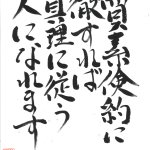 簡素倹約に
徹すれば
真理に従う
人になれます